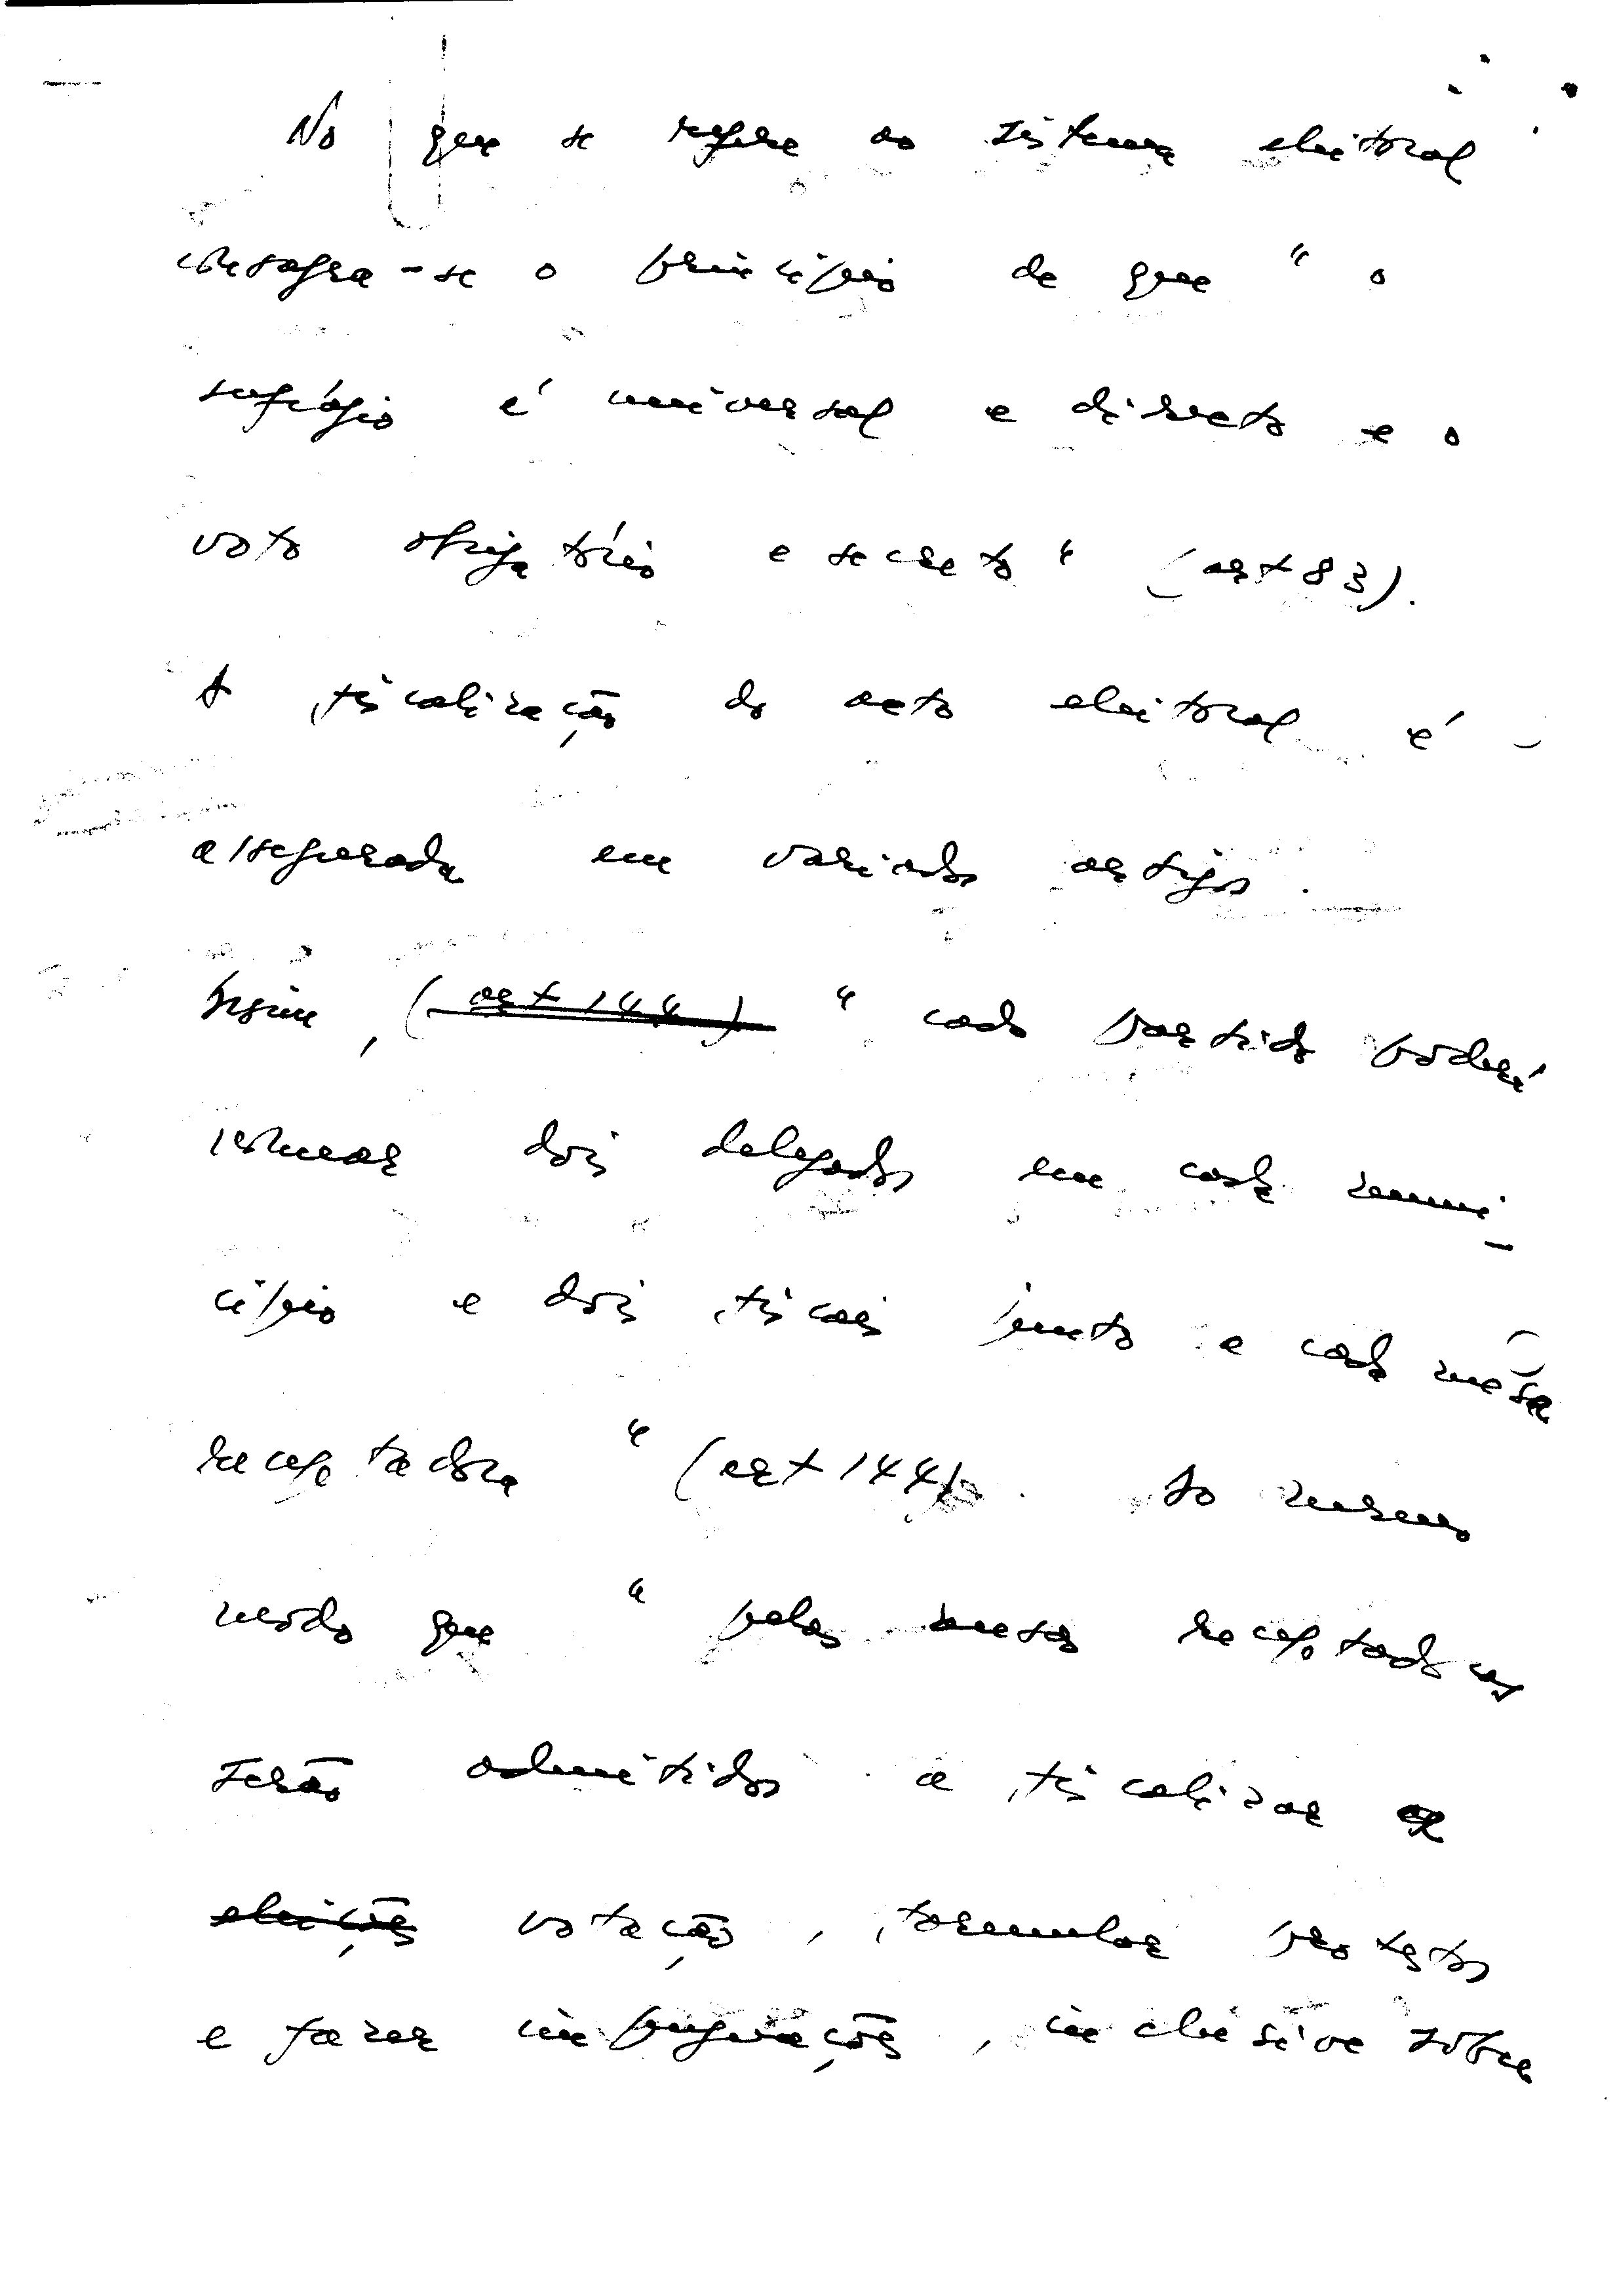 No que se refere ao sistema eleitoral
consagra-se o princípio de que " o
sufrágio é universal e directo e o
voto obrigatório e secreto " (art 83).
A fiscalização do acto eleitoral é
assegurada em variados artigos.
Assim, (art 144) " cada partido poderá
nomear dois delegados em cada muni-
cípio e dois fiscais junto a cada mesa
receptadora " (art 144). Do mesmo
modo que " pelas mesas receptadoras
serão admitidos a fiscalizar a
eleições votação, formular protestos
e fazer impugnações, inclusive sobre